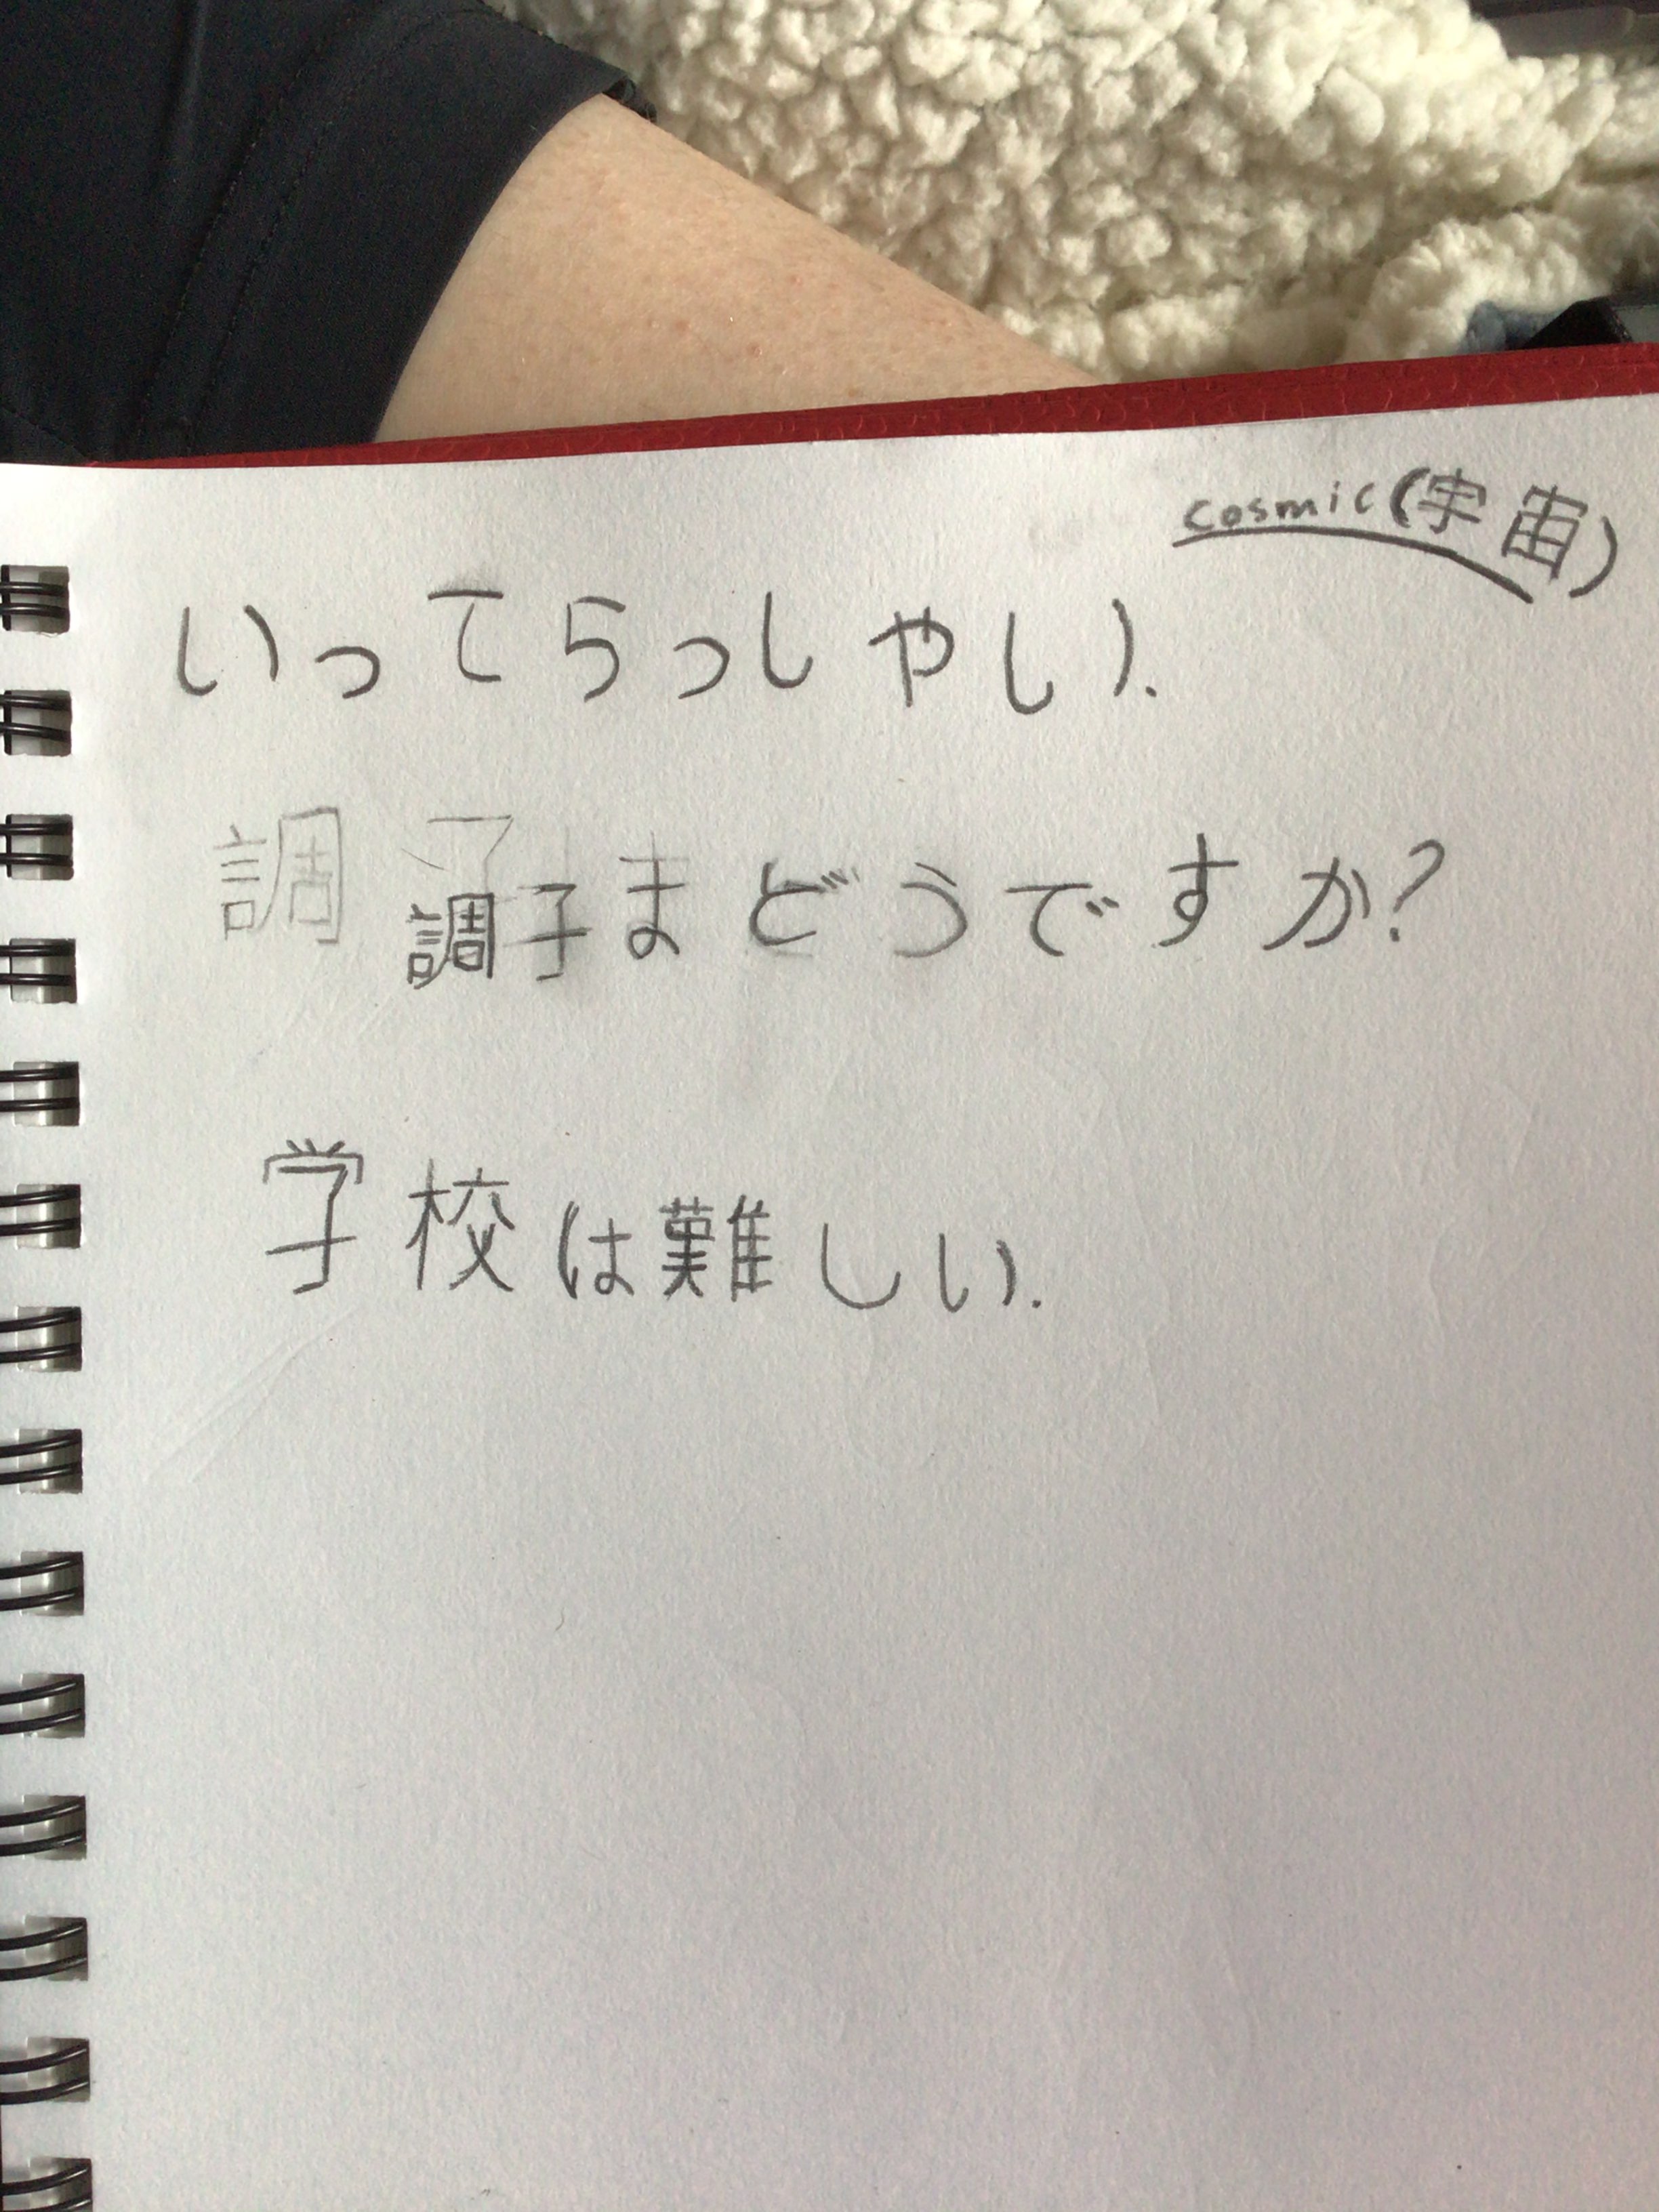 cosmic(宇宙)
いってらっしゃい.
調子まどうですか?
学校は難しい.